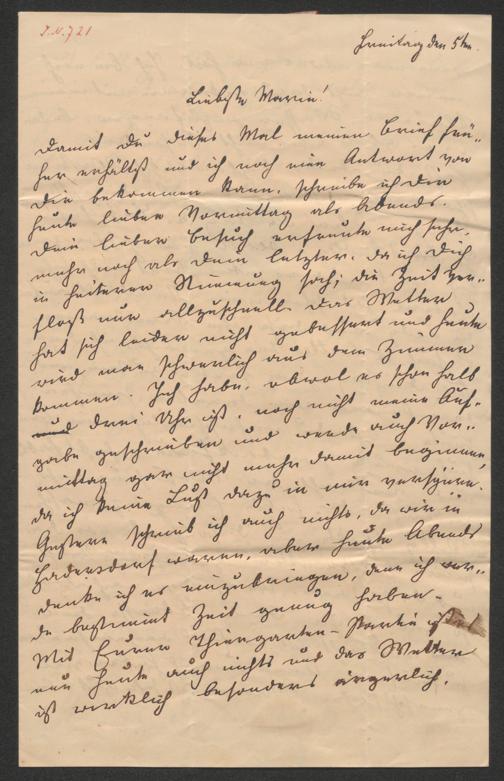 I.N. 721
Freitag den 5ten
Liebste Marie!
Damit Du dieses Mal meinen Brief frü-
her erhältst und ich noch eine Antwort von
Dir bekommen kann, schreibe ich Dir
heute lieber Vormittag als Abends.
Dein lieber Besuch erfreute mich sehr,
mehr noch als Dein letzter, da ich Dich
in heiterer Stimmung sah; die Zeit ver-
floß nur allzuschnell. Das Wetter
hat sich leider nicht gebessert und heute
wird man schwerlich aus dem Zimmer
kommen. Ich habe, obwol es schon halb
drei Uhr ist, noch nicht meine Auf-
gabe geschrieben und werde auch Vor-
mittag gar nicht mehr damit beginnen,
da ich keine Lust dazu in mir verspüre.
Gestern schrieb ich auch nichts, da wir in
Hadersdorf waren, aber heute Abends
denke ich es einzubringen, denn ich wer-
de bestimmt Zeit genug haben.
Mit Eurer Thiergarten-Partie ist es
nun heute auch nichts und das Wetter
ist wirklich besonders ärgerlich.